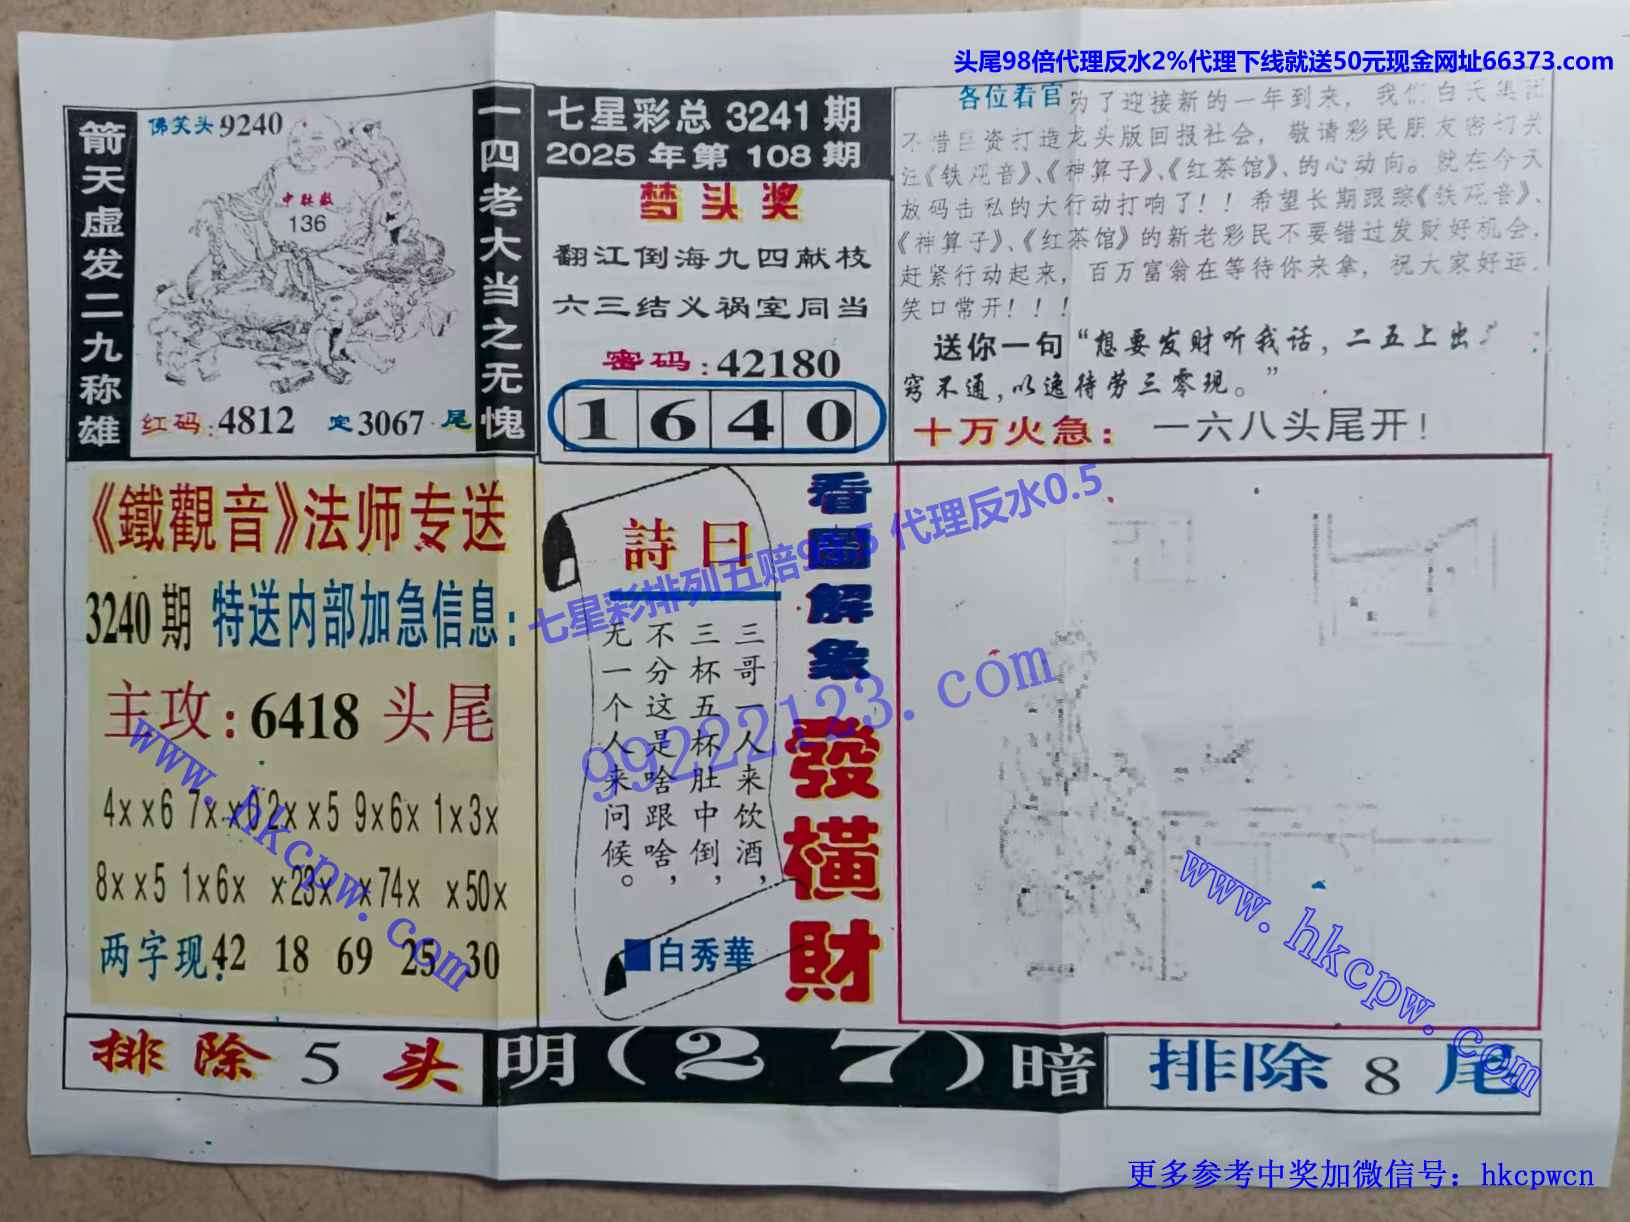 头尾98倍代理反水2%代理下线就送50元现金网址66373.com
箭天虚发二九称雄
佛笑头9240
136
红码:4812 定3067尾
一四老大当之无愧
七星彩总3241期
2025年第108期
梦头奖
翻江倒海九四献枝
六三结义祸室同当
密码:42180
1640
各位看官为了迎接新的一年到来，我们白天集团
不惜巨资打造龙头版回报社会，敬请彩民朋友密切关
注《铁观音》、《神算子》、《红茶馆》、的心动向。就在今天
放码击私的大行动打响了！！希望长期跟踪《铁观音》、
《神算子》、《红茶馆》的新老彩民不要错过发财好机会，
赶紧行动起来，百万富翁在等待你来拿，祝大家好运，
笑口常开！！！
送你一句“想要发财听我话，二五上出
窍不通，以逸待劳三零现。”
十万火急：一六八头尾开！
《鐵觀音》法师专送
3240期 特送内部加急信息：
主攻：6418头尾
4xx6 7xx0 2xx5 9x6x 1x3x
8xx5 1x6x x23x x74x x50x
两字现：42 18 69 25 30
詩曰
三哥一人来饮酒，
三杯五杯肚中倒，
不分这是啥跟啥，
无一个人来问候。
白秀華
看圖解象
發橫財
七星彩排列五赔98.5 代理反水0.5
99222123.com
www.hkcpw.com
www.hkcpw.com
排除5头
明(27)暗
排除8尾
更多参考中奖加微信号：hkcpwcn